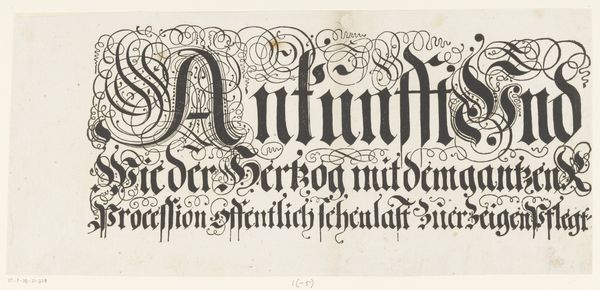 Ankunfft Und
Wie der Hertzog mit dem gantzen R
Procession Offentlich sehen last Zuerzeigen Pflegt
1(-5)